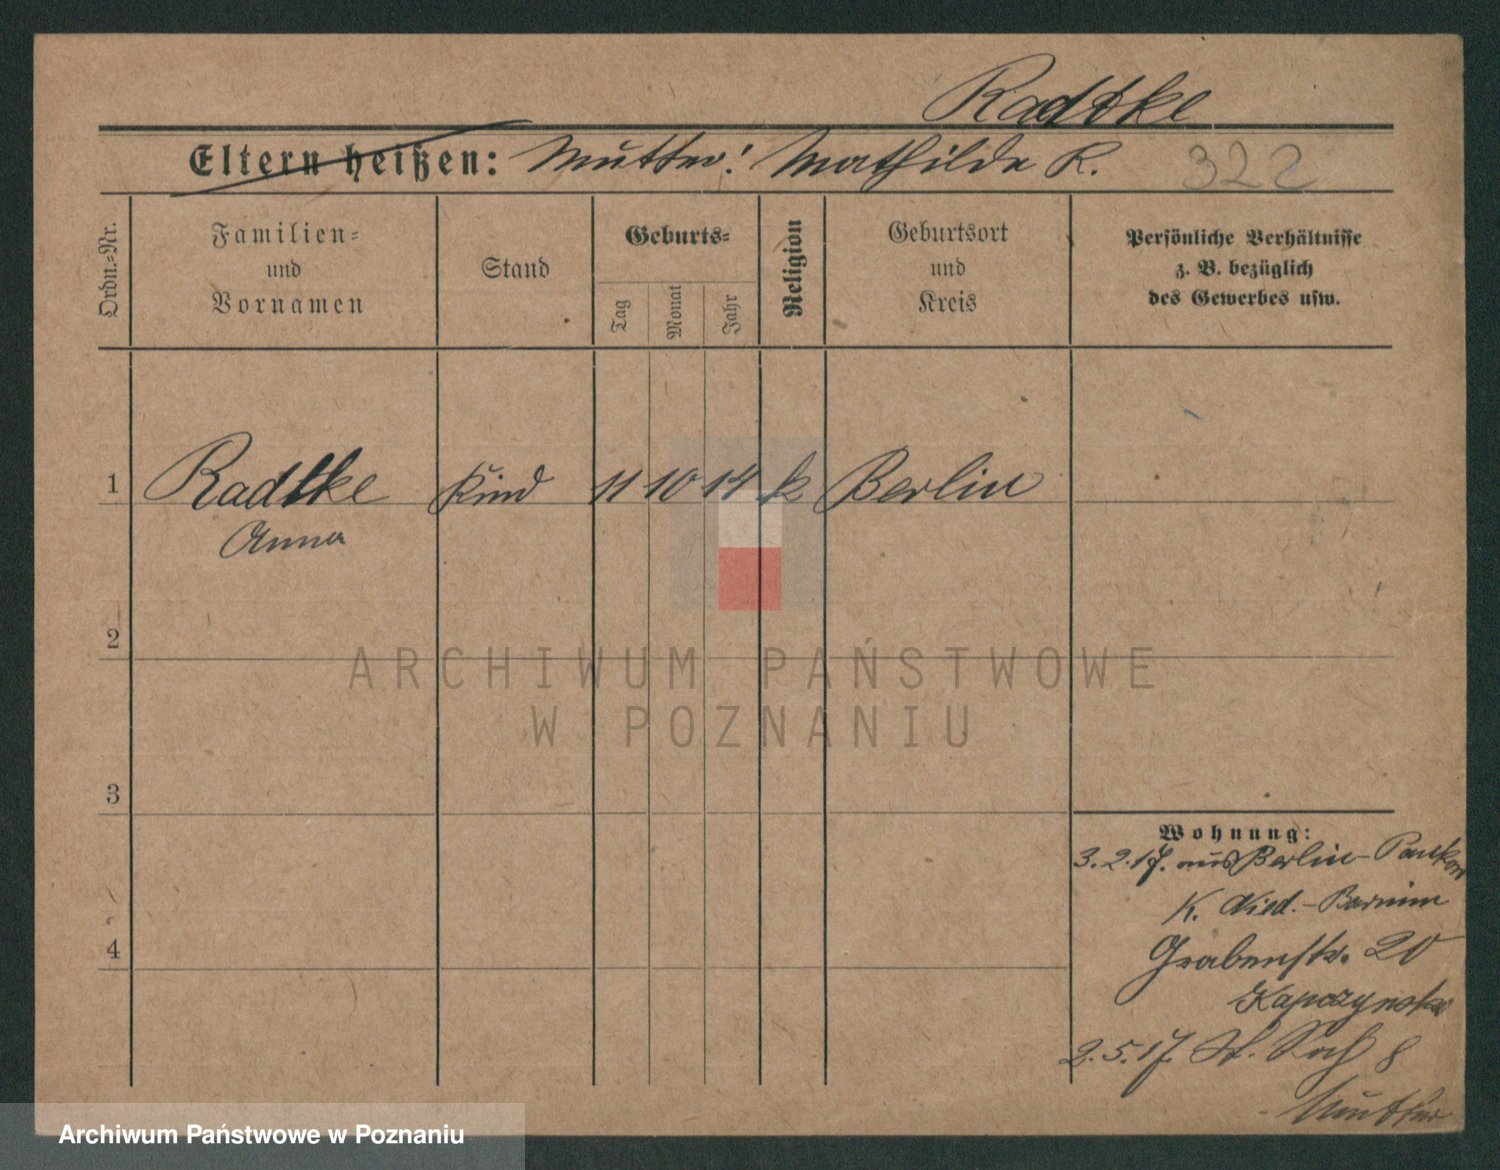 Radtke
Eltern heißen: Mutter: Mathilde R. 322
Ordn.-Nr.
Familien-
und
Vornamen
Stand
Geburts-
Tag
Monat
Jahr
Religion
Geburtsort
und
Kreis
Persönliche Verhältnisse
z. B. bezüglich
des Gewerbes usw.
1 Radtke Kind 11 10 14 k Berlin
Anna
2
3
4
Wohnung:
3.2.17. aus Berlin-Pankow
K. Nied.-Barnim
Grabenstr. 20
Kapczynska
2.5.17. 8
Mutter
ARCHIWUM PAŃSTWOWE
W POZNANIU
Archiwum Państwowe w Poznaniu